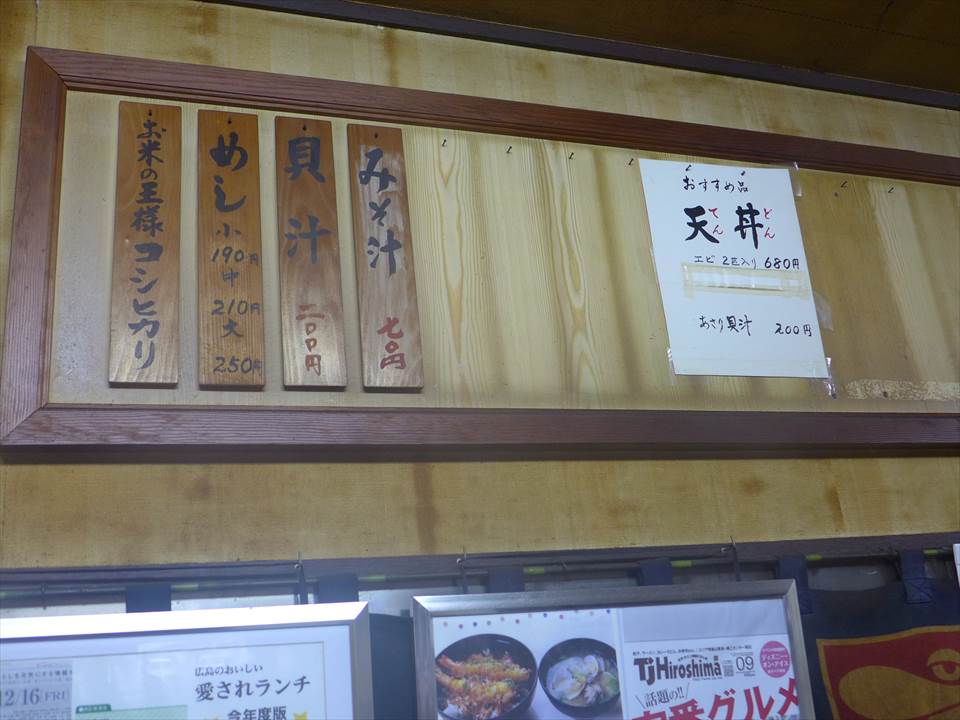 みそ汁 七〇円
貝汁 二〇〇円
めし 小 190円 中 210円 大 250円
お米の王様コシヒカリ
おすすめ品
天丼
てん どん
エビ 2匹入り 680円
あさり貝汁 200円
12/16 FRI
広島のおいしい
愛されランチ
今年度版
TJHiroshima
09
話題の!!
定番グルメ
ディズニー・
オン・アイス